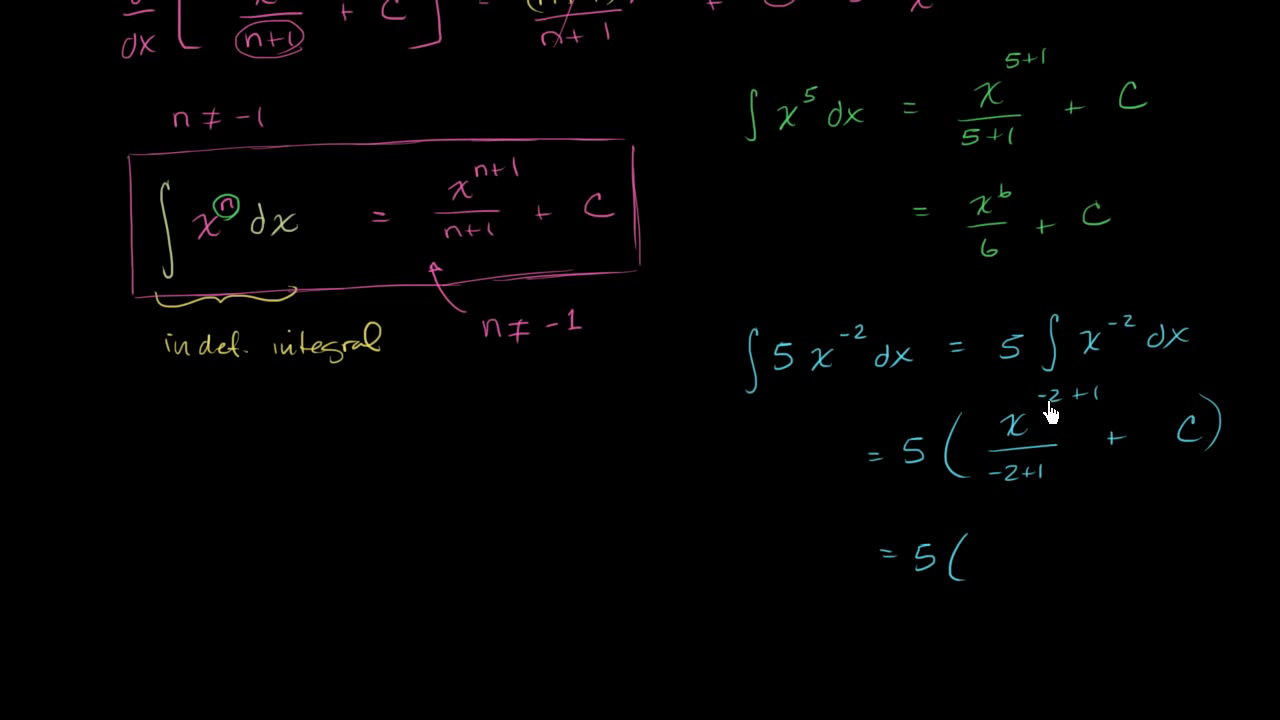 d/dx [ x/(n+1) + C ] = (n+1)/(n+1) + 0 = x
n ≠ -1
∫ xⁿ dx = xⁿ⁺¹/(n+1) + C
indef. integral
n ≠ -1
∫ x⁵ dx = x⁵⁺¹/(5+1) + C
= x⁶/6 + C
∫ 5 x⁻² dx = 5 ∫ x⁻² dx
= 5 ( x⁻²⁺¹/(-2+1) + C )
= 5 (